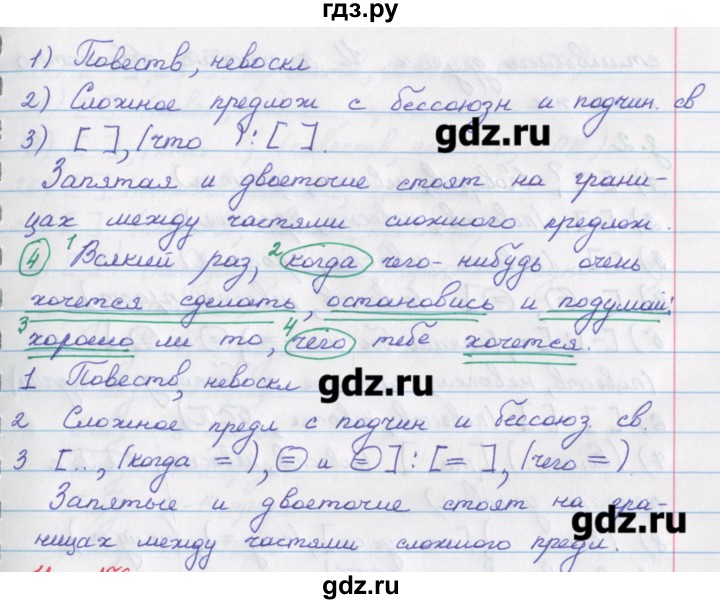 гдз.ру
1) Повеств, невоскл
2) Сложное предлож с бессоюзн и подчин. св
3) [ ], (что ): [ ].
gdz.ru
Запятая и двоеточие стоят на грани-
цах между частями сложного предлож.
4 1 Всякий раз, 2 когда чего-нибудь очень
хочется сделать, остановись и подумай:
3 хорошо ли то, 4 чего тебе хочется.
1 Повеств, невоскл gdz.ru
2 Сложное предл с подчин и бессоюз. св.
3 [.., (когда = ), = и = ] : [ = ], (чего = )
Запятые и двоеточие стоят на гра-
gdz.ru
ницах между частями сложного предл.
gdz.ru